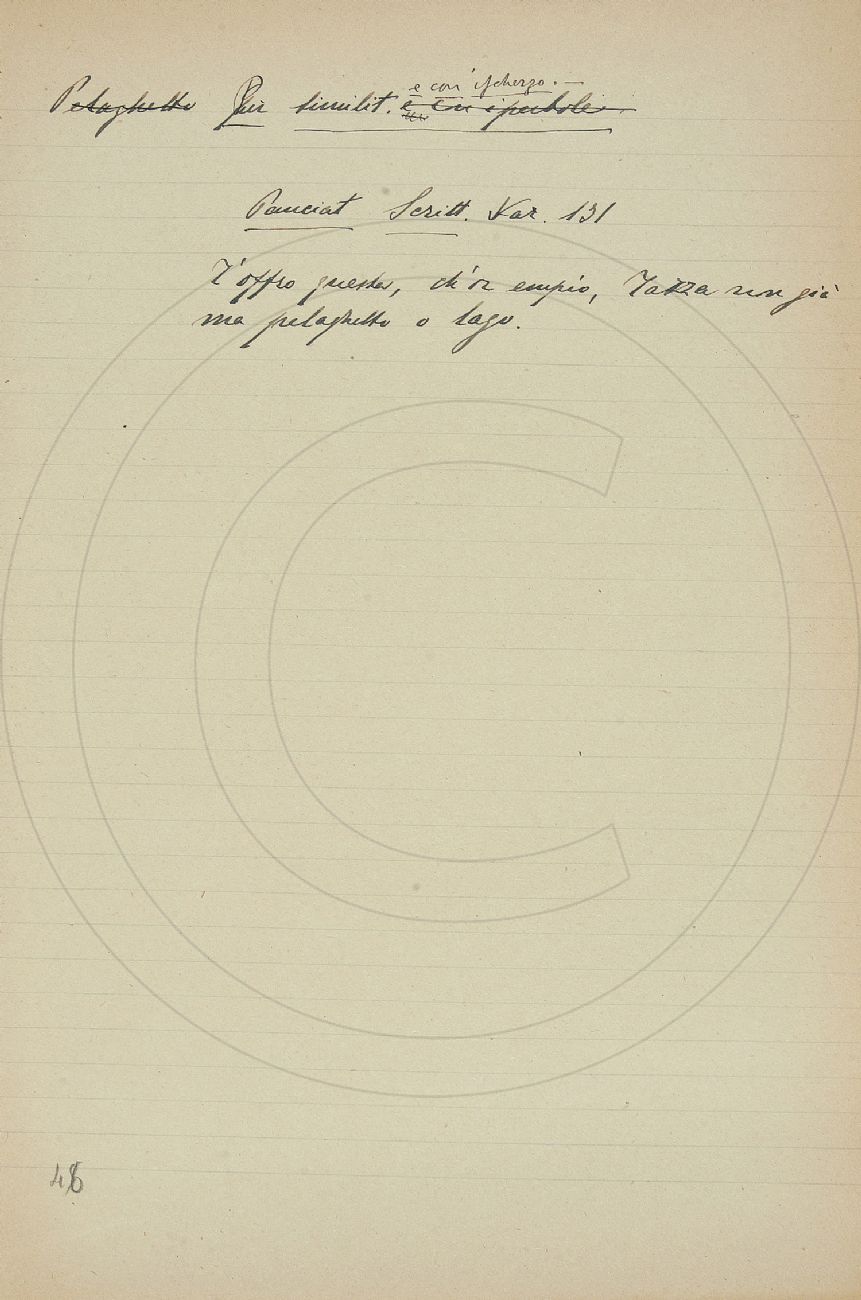 e con ischerzo. —
Pelaghetto Per similit. e con iperbole
Panciat Scritt. Var. 131
T'offro questa, ch'or empio, Tazza non già
ma pelaghetto o lago.
48